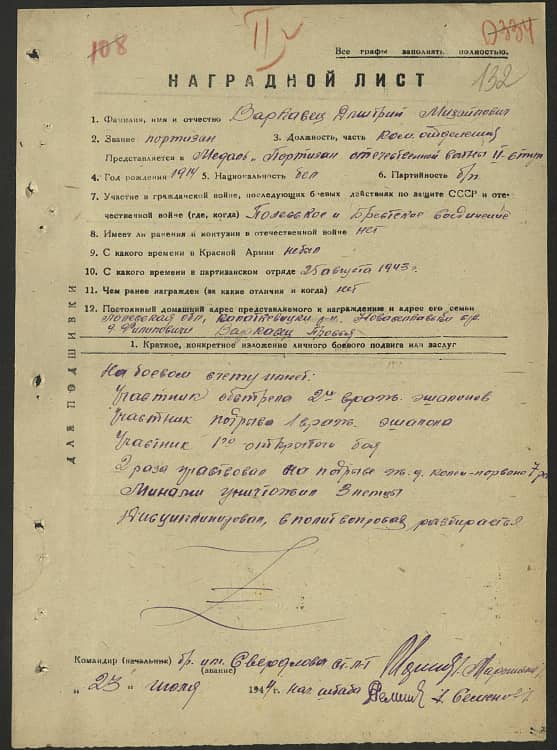 108
II
0334
Все графы заполнять полностью.
132
НАГРАДНОЙ ЛИСТ
1. Фамилия, имя и отчество Варкавец Дмитрий Михайлович
2. Звание партизан 3. Должность, часть ком. отделения
Представляется к Медаль „Партизан отечественной войны II степ
4. Год рождения 1914 5. Национальность бел 6. Партийность б/п
7. Участие в гражданской войне, последующих боевых действиях по защите СССР и оте-
чественной войне (где, когда) Полесское и Брестское соединение
8. Имеет ли ранения и контузии в отечественной войне нет
9. С какого времени в Красной Армии небыл
10. С какого времени в партизанском отряде 25 августа 1943 г.
11. Чем ранее награжден (за какие отличия и когда) нет
12. Постоянный домашний адрес представляемого к награждению и адрес его семьи
Полесская обл, Копаткевицки р-н,
д. Филиповичи Варкавец
1. Краткое, конкретное изложение личного боевого подвига или заслуг
ДЛЯ ПОДШИВКИ
На боевом счету имеет:
Участник обстрела 2х враж. эшалонов
Участник подрыва 1 враж. эшалона
Участник 1го открытого боя
2 раза участвовал на подрыве ж.д. колеи
Минами уничтожил 3 немцы
Дисциплинирован, в полит вопросах разбирается
Командир (начальник) бр. им. Свердлова ст. л-т
(звание)
„ 23 " июля 1944 г. нач штаба Семенов